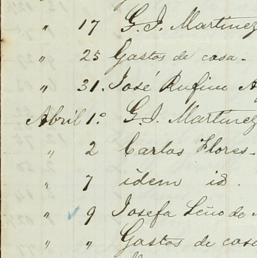 " 17 G. J. Martinez
" 25 Gastos de casa.
" 31. José Rufino
Abril 1º G. J. Martinez
" 2 Carlos Flores.
" 7 idem id.
" 9 Josefa de
" " Gastos de casa